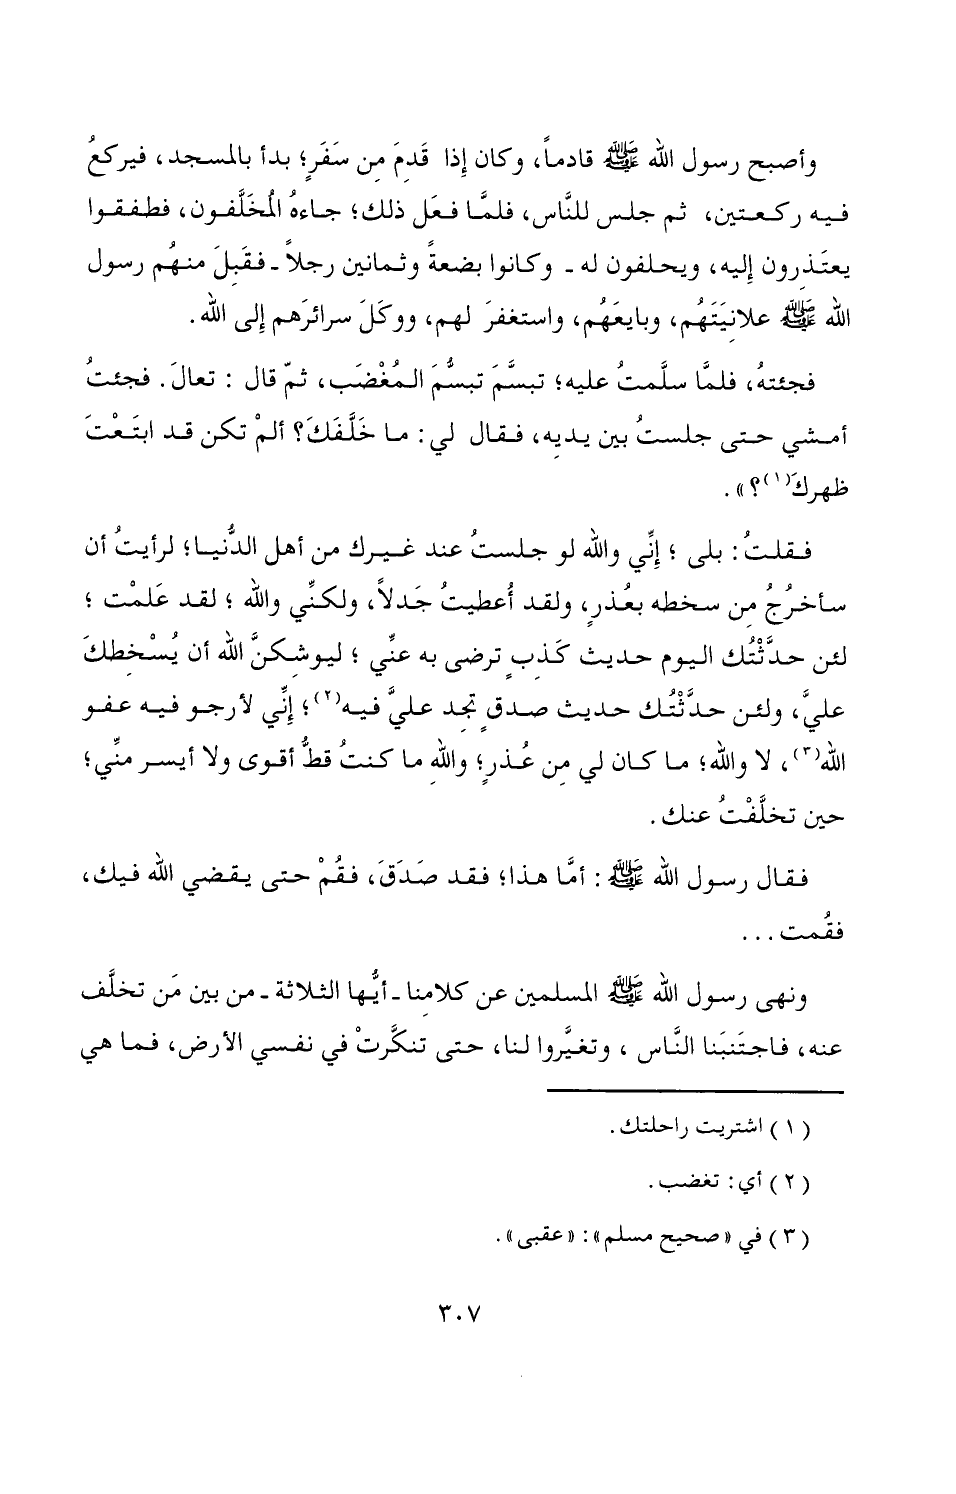 وأصبح رسول الله ﷺ قادماً، وكان إذا قَدِمَ مِن سَفَرٍ؛ بدأ بالمسجد، فيركعُ
فيه ركعتين، ثم جلس للنَّاس، فلمَّا فعَل ذلك؛ جاءهُ المُخَلَّفون، فطفقوا
يعتَذِرون إليه، ويحلفون له ـ وكانوا بضعةً وثمانين رجلاً ـ فقَبِلَ منهُم رسول
الله ﷺ علانِيَتَهُم، وبايعَهُم، واستغفرَ لهم، ووكَلَ سرائرَهم إلى الله.
فجئتهُ، فلمَّا سلَّمتُ عليه؛ تبسَّمَ تبسُّمَ المُغْضَب، ثمّ قال : تعالَ. فجئتُ
أمشي حتى جلستُ بين يديهِ، فقال لي: ما خَلَّفَكَ؟ ألمْ تكن قد ابتَعْتَ
ظهركَ(١)؟».
فقلتُ: بلى ؛ إنِّي والله لو جلستُ عند غيرك من أهل الدُّنيا؛ لرأيتُ أن
سأخرُجُ مِن سخطه بعُذرٍ، ولقد أُعطيتُ جَدلاً، ولكنِّي والله ؛ لقد عَلمْت ؛
لئن حدَّثْتُك اليوم حديث كَذبٍ ترضى به عنِّي ؛ ليوشكنَّ الله أن يُسْخطكَ
عليَّ، ولئن حدَّثْتُك حديث صدقٍ تَجد عليَّ فيه(٢)؛ إنِّي لأرجو فيه عفو
الله(٣)، لا والله؛ ما كان لي مِن عُذرٍ؛ واللهِ ما كنتُ قطُّ أقوى ولا أيسر منِّي؛
حين تخلَّفْتُ عنك.
فقال رسول الله ﷺ : أمَّا هذا؛ فقد صَدَقَ، فقُمْ حتى يقضي الله فيك،
فقُمت...
ونهى رسول الله ﷺ المسلمين عن كلامِنا ـ أيُّها الثلاثة ـ من بين مَن تخلَّف
عنه، فاجتَنبَنا النَّاس ، وتغيَّروا لنا، حتى تنكَّرتْ في نفسي الأرض، فما هي
(١) اشتريت راحلتك.
(٢) أي: تغضب.
(٣) في «صحيح مسلم»: «عقبى».
٣٠٧